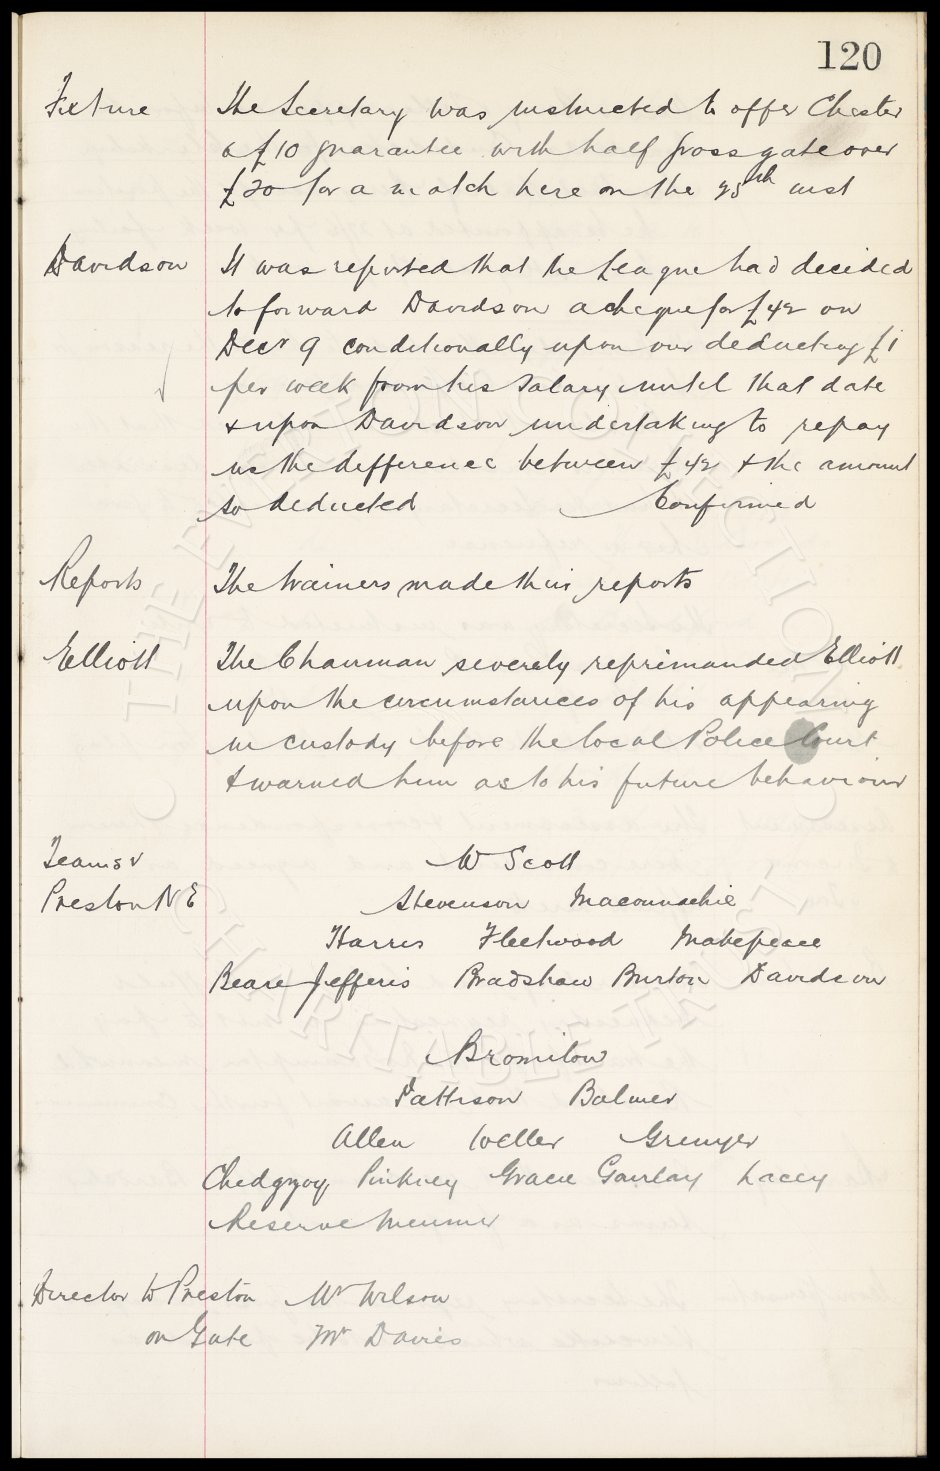 120
Fixture The Secretary was instructed to offer Chester
a £10 guarantee with half gross gate over
£20 for a match here on the 25th inst
Davidson It was reported that the League had decided
to forward Davidson a cheque for £42 on
Decr 9 conditionally upon our deducting £1
per week from his salary until that date
& upon Davidson undertaking to repay
us the difference between £42 & the amount
so deducted Confirmed
Reports The trainers made their reports
Elliott The Chairman severely reprimanded Elliott
upon the circumstances of his appearing
in custody before the local Police Court
& warned him as to his future behaviour
Teams v W Scott
Preston N E Stevenson Maconnachie
Harris Fleetwood Makepeace
Beare Jefferis Bradshaw Burton Davidson
Bromilow
Pattison Balmer
Allen Weller Grenyer
Chedgzoy Pinkney Gracie Gourlay Lacey
Reserve Meunier
Director to Preston Mr Wilson
on Gate Mr Davies